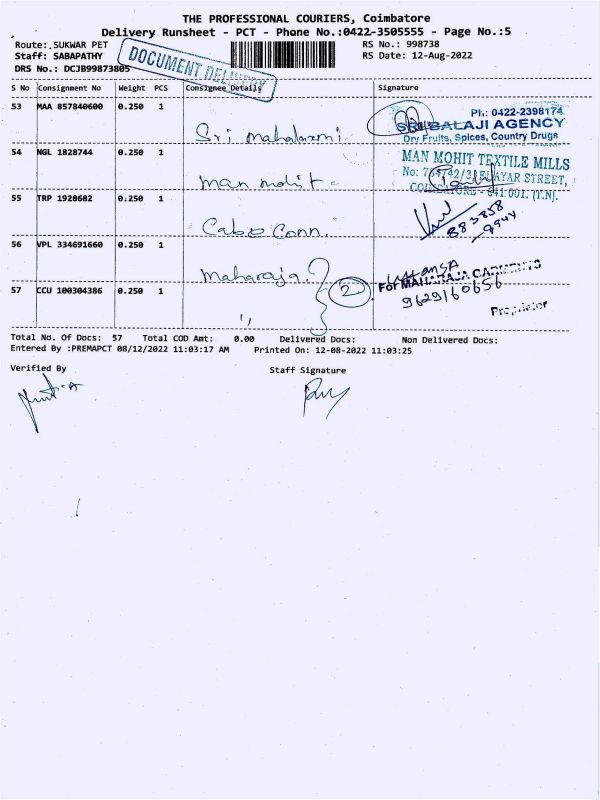 THE PROFESSIONAL COURIERS, Coimbatore
Delivery Runsheet - PCT - Phone No.:0422-3505555 - Page No.:5
Route: SUKWAR PET
RS No.: 998738
Staff: SABAPATHY
RS Date: 12-Aug-2022
DRS No.: DCJB99873805
DOCUMENT DELIVERY
S No Consignment No Weight PCS Consignee Details Signature
53 MAA 857840600 0.250 1
Sri mahalaxmi
Ph: 0422-2398174
SRI BALAJI AGENCY
Dry Fruits, Spices, Country Drugs
54 NGL 1828744 0.250 1
man mohit
MAN MOHIT TEXTILE MILLS
ELAYAR STREET,
COIMBATORE - 641 001. (T.N).
55 TRP 1928682 0.250 1
Conn.
56 VPL 334691660 0.250 1
maharaja
2
For MAHARAJA GARMENTS
9629160656
Proprietor
57 CCU 100304386 0.250 1
"
Total No. Of Docs: 57 Total COD Amt: 0.00 Delivered Docs: Non Delivered Docs:
Entered By :PREMAPCT 08/12/2022 11:03:17 AM Printed On: 12-08-2022 11:03:25
Verified By
Staff Signature